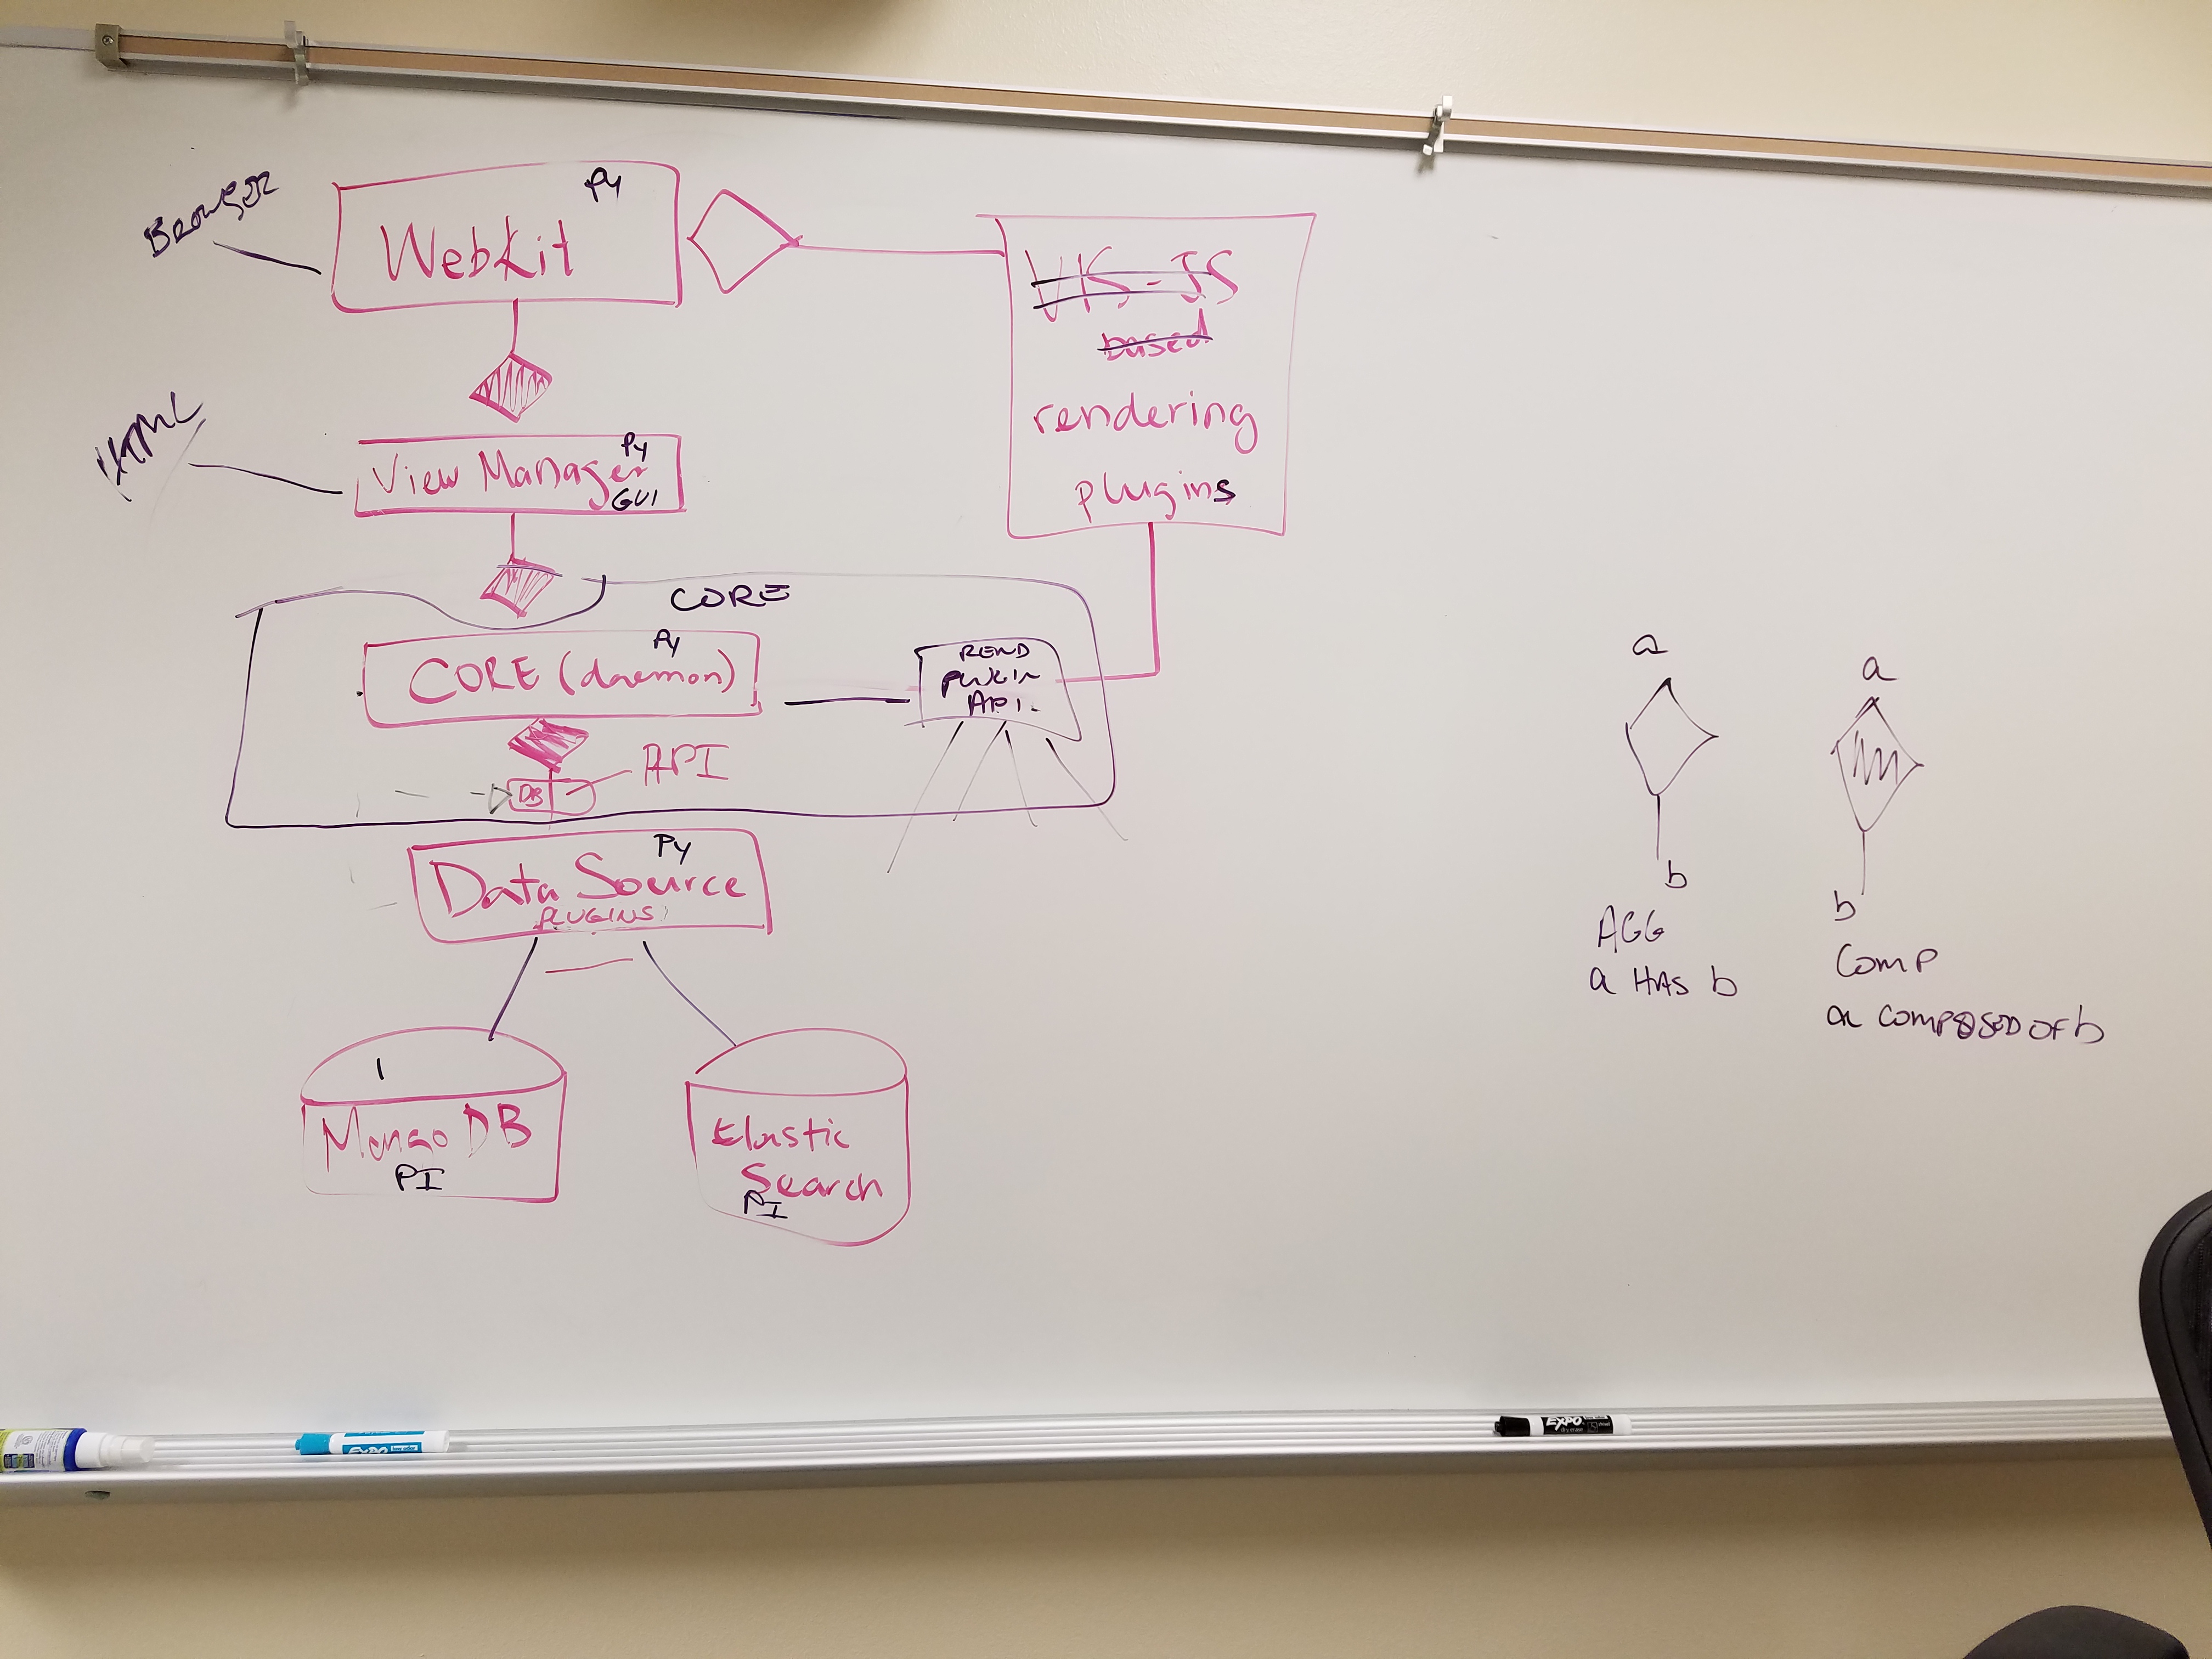 Browser
Py
WebKit
VIS-JS
based
rendering
plugins
HTML
Py
View Manager
GUI
CORE
Py
CORE (daemon)
REND
PLUGIN
API
API
DB
Py
Data Source
PLUGINS
Mongo DB
PI
Elastic
Search
PI
a
b
AGG
a HAS b
a
b
COMP
a COMPOSED OF b
EXPO
EXPO